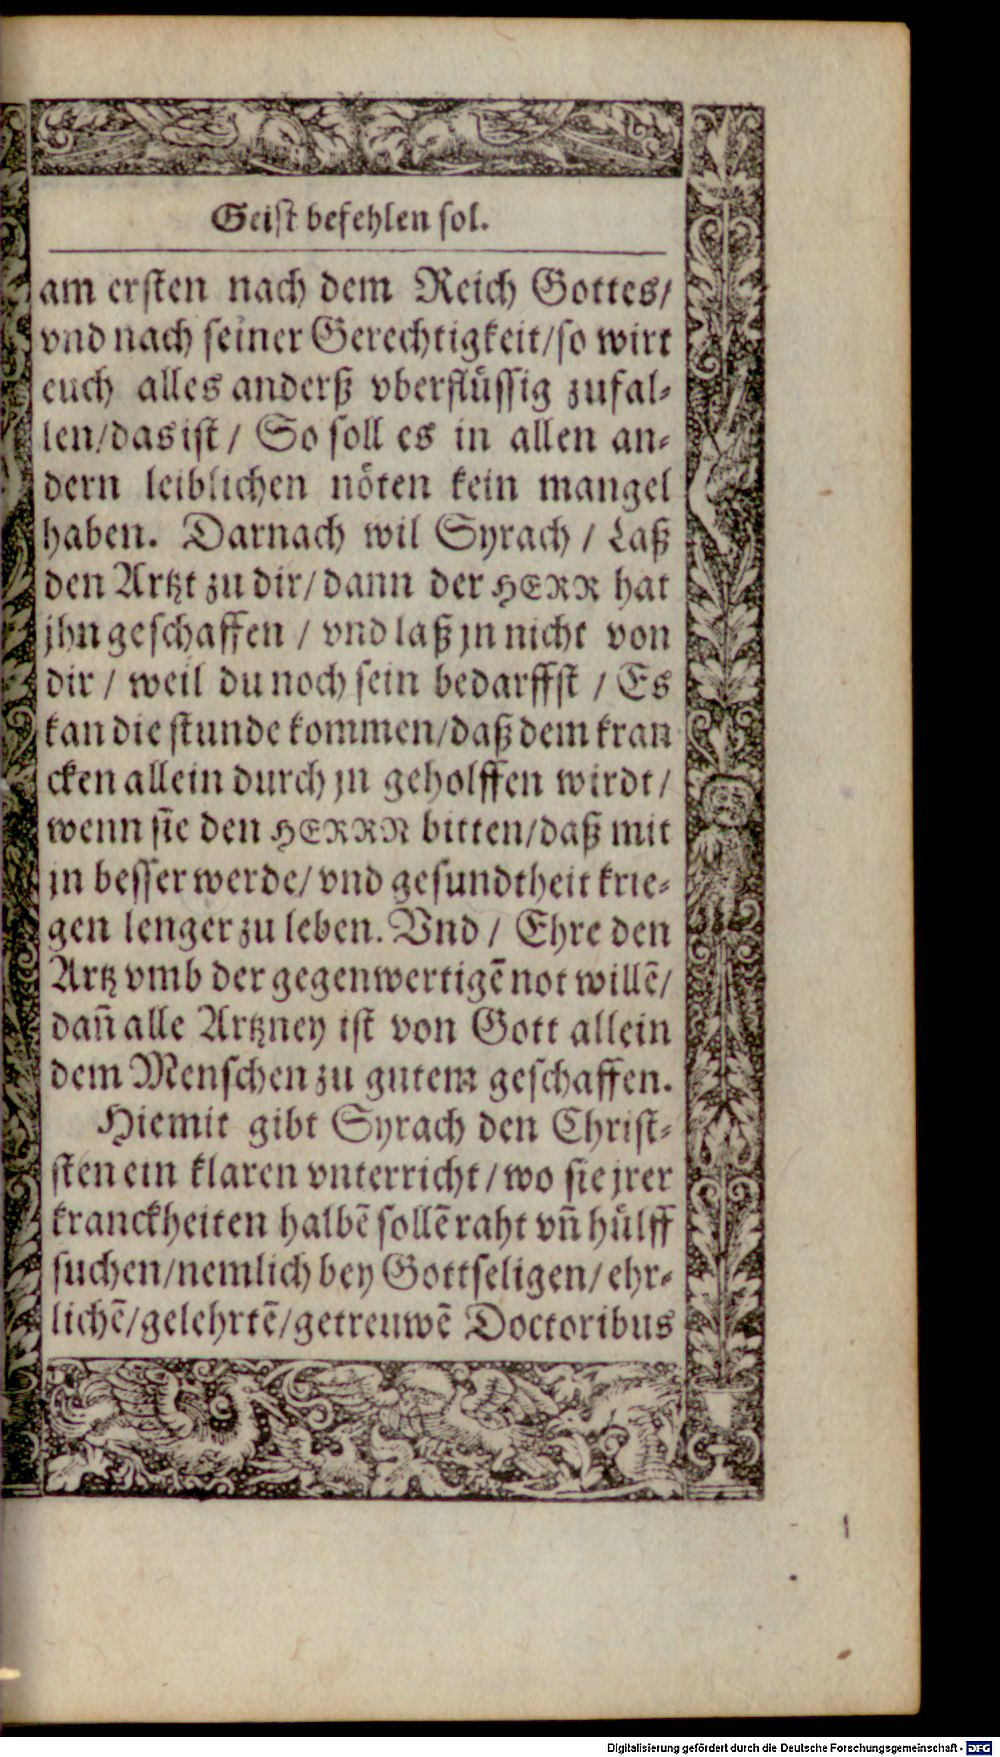 Geist befehlen sol.
am ersten nach dem Reich Gottes/
vnd nach seiner Gerechtigkeit/so wirt
euch alles anderß vberflüssig zufal-
len/das ist / So soll es in allen an-
dern leiblichen nöten kein mangel
haben. Darnach wil Syrach / Laß
den Artzt zu dir/dann der HERR hat
jhn geschaffen / vnd laß jn nicht von
dir / weil du noch sein bedarffst / Es
kan die stunde kommen/daß dem kran
cken allein durch jn geholffen wirdt/
wenn sie den HERRN bitten/daß mit
jn besser werde/vnd gesundtheit krie-
gen lenger zu leben. Vnd / Ehre den
Artz vmb der gegenwertigē not willē/
dañ alle Artzney ist von Gott allein
dem Menschen zu gutem geschaffen.
Hiemit gibt Syrach den Christ-
sten ein klaren vnterricht/wo sie jrer
kranckheiten halbē sollē raht vñ hülff
suchen/nemlich bey Gottseligen/ehr-
lichē/gelehrtē/getreuwē Doctoribus
Digitalisierung gefördert durch die Deutsche Forschungsgemeinschaft - DFG